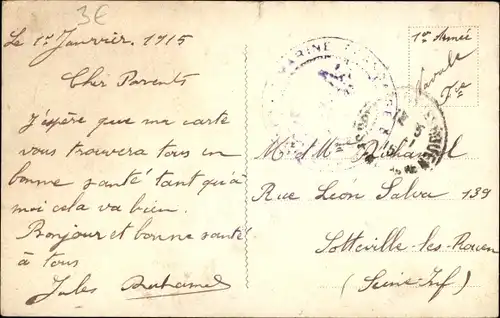 3€
Le 1er Janvrier. 1915
Cher Parents
J'espère que ma carte
vous trouvera tous en
bonne santé tant qu'à
moi cela va bien.
Bonjour et bonne santé
à tous
Jules Duhamel
1re Armée
Navale
MARINE FRANÇAISE
ROUEN
Mr et Mme Duhamel
Rue Léon Salva 139
Sotteville-les-Rouen
(Seine Inf)